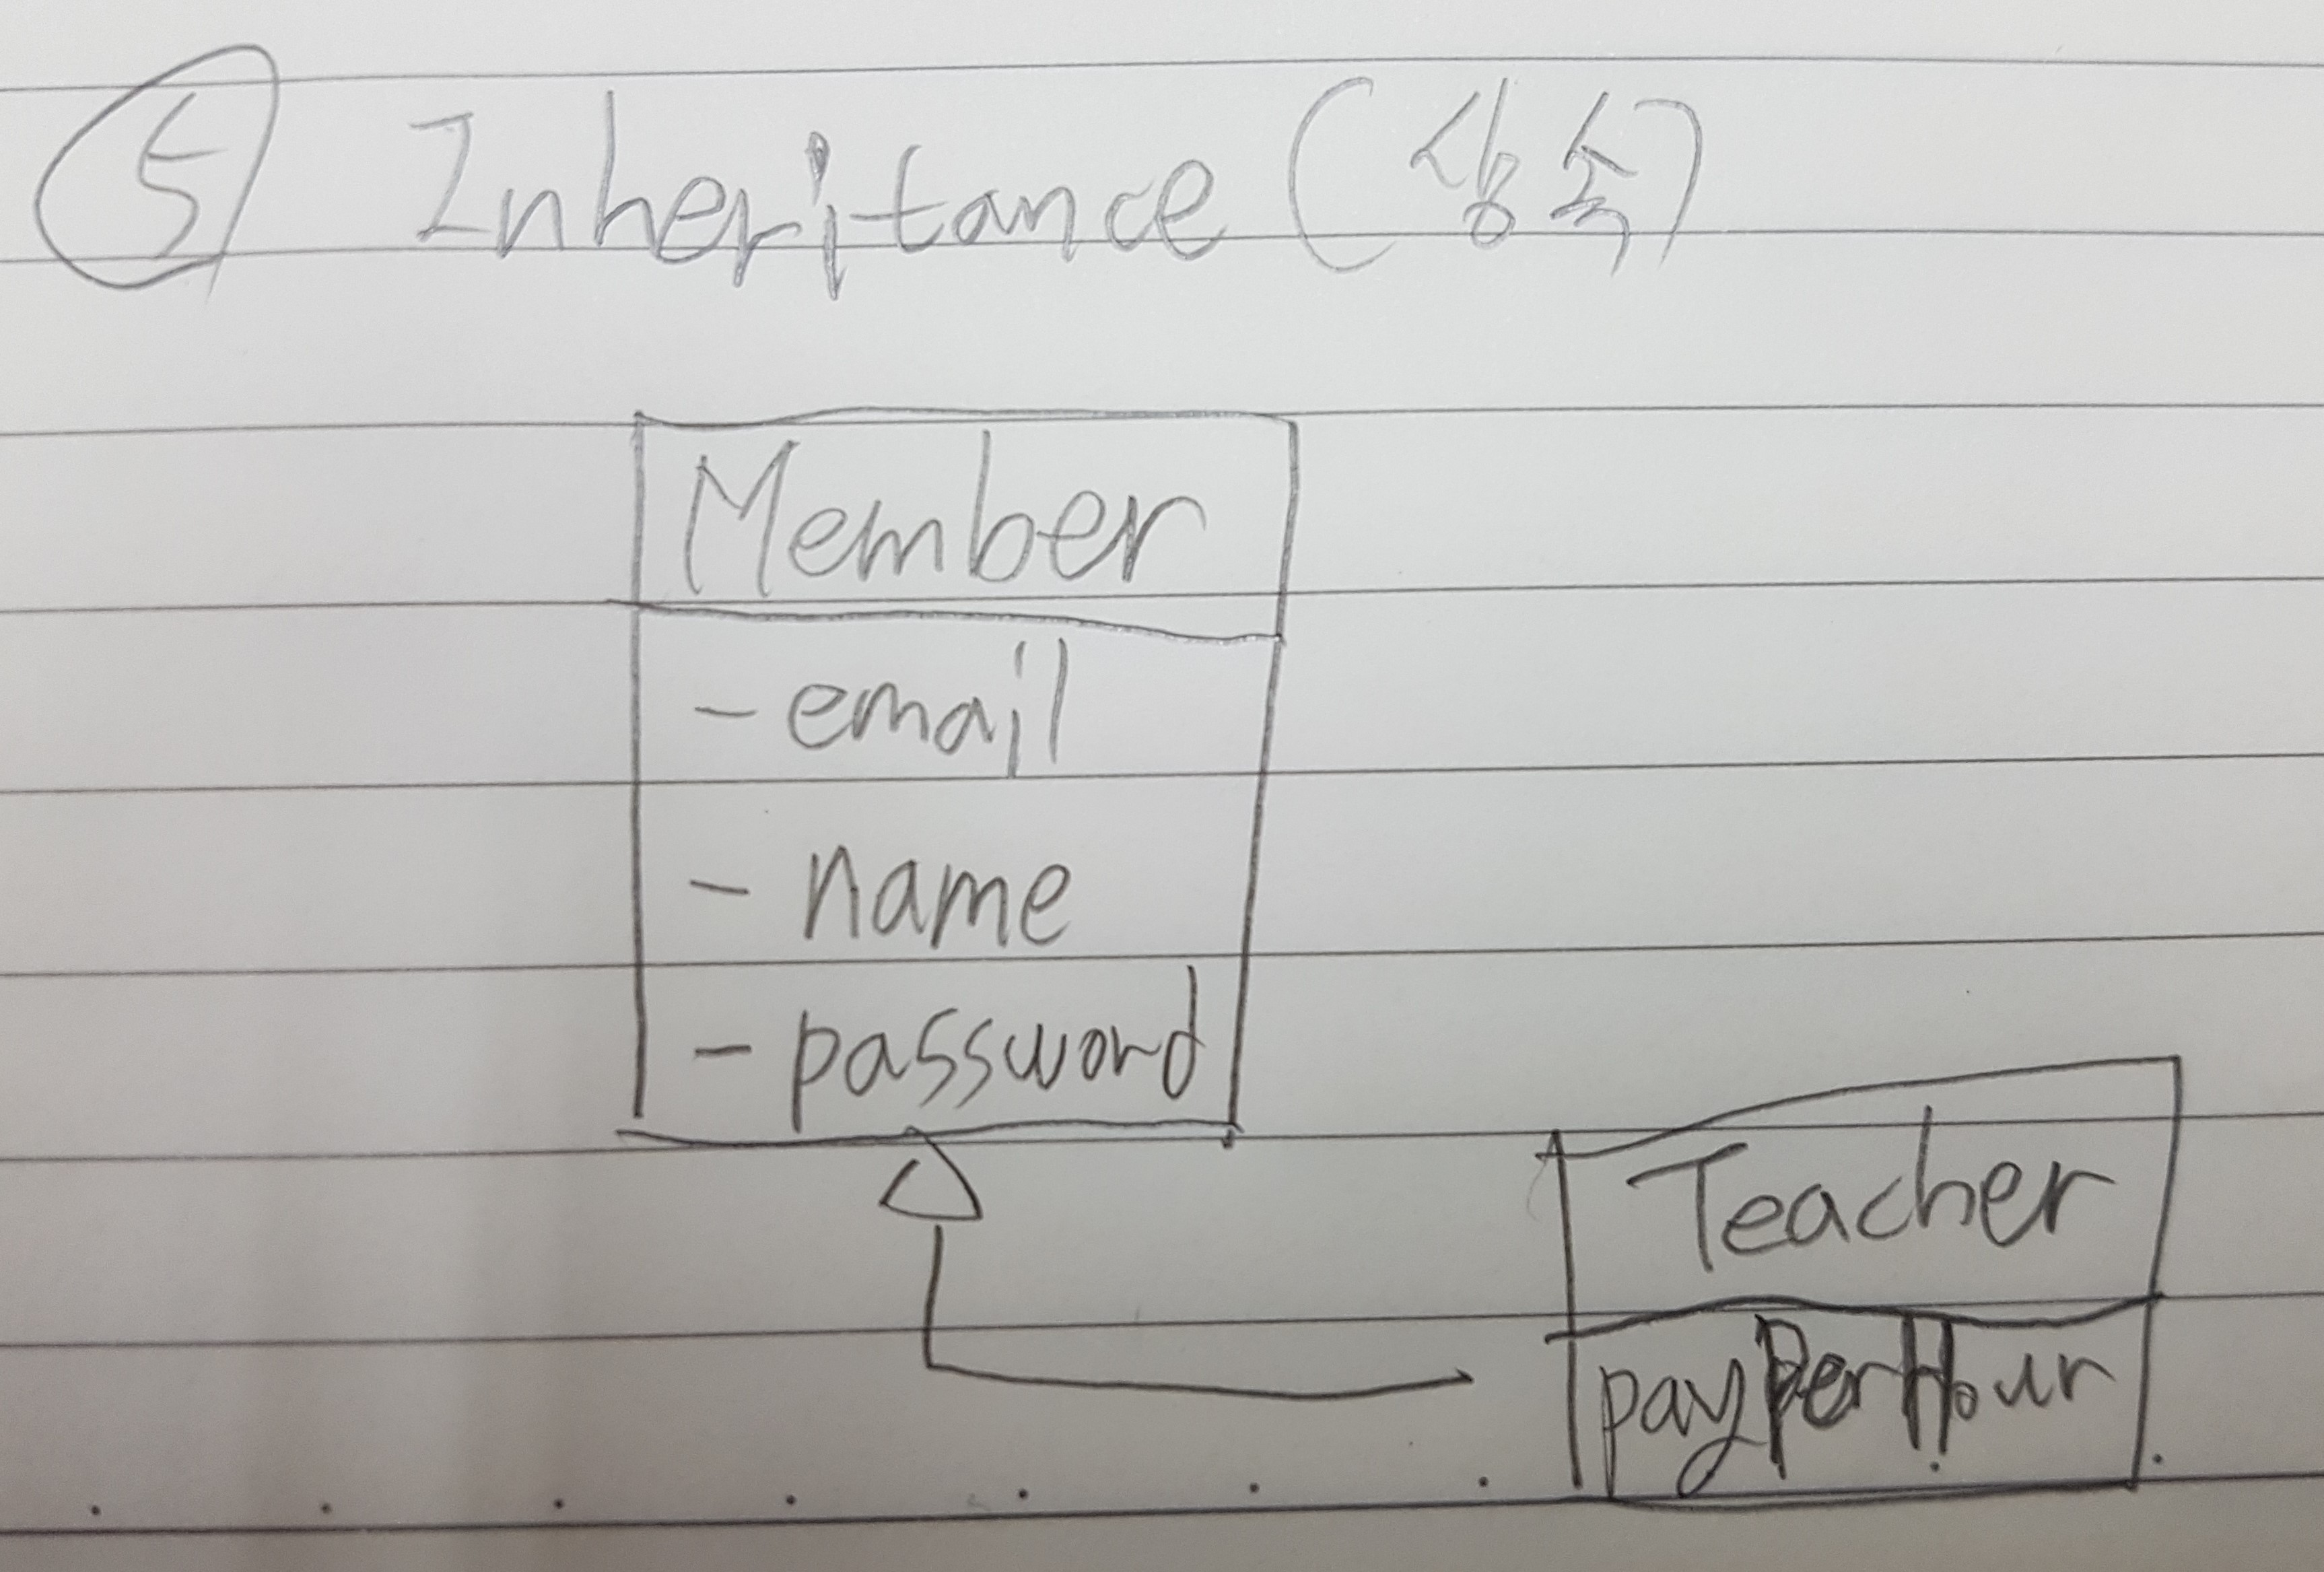 ⑤ Inheritance (상속)
Member
- email
- name
- password
Teacher
payPerHour